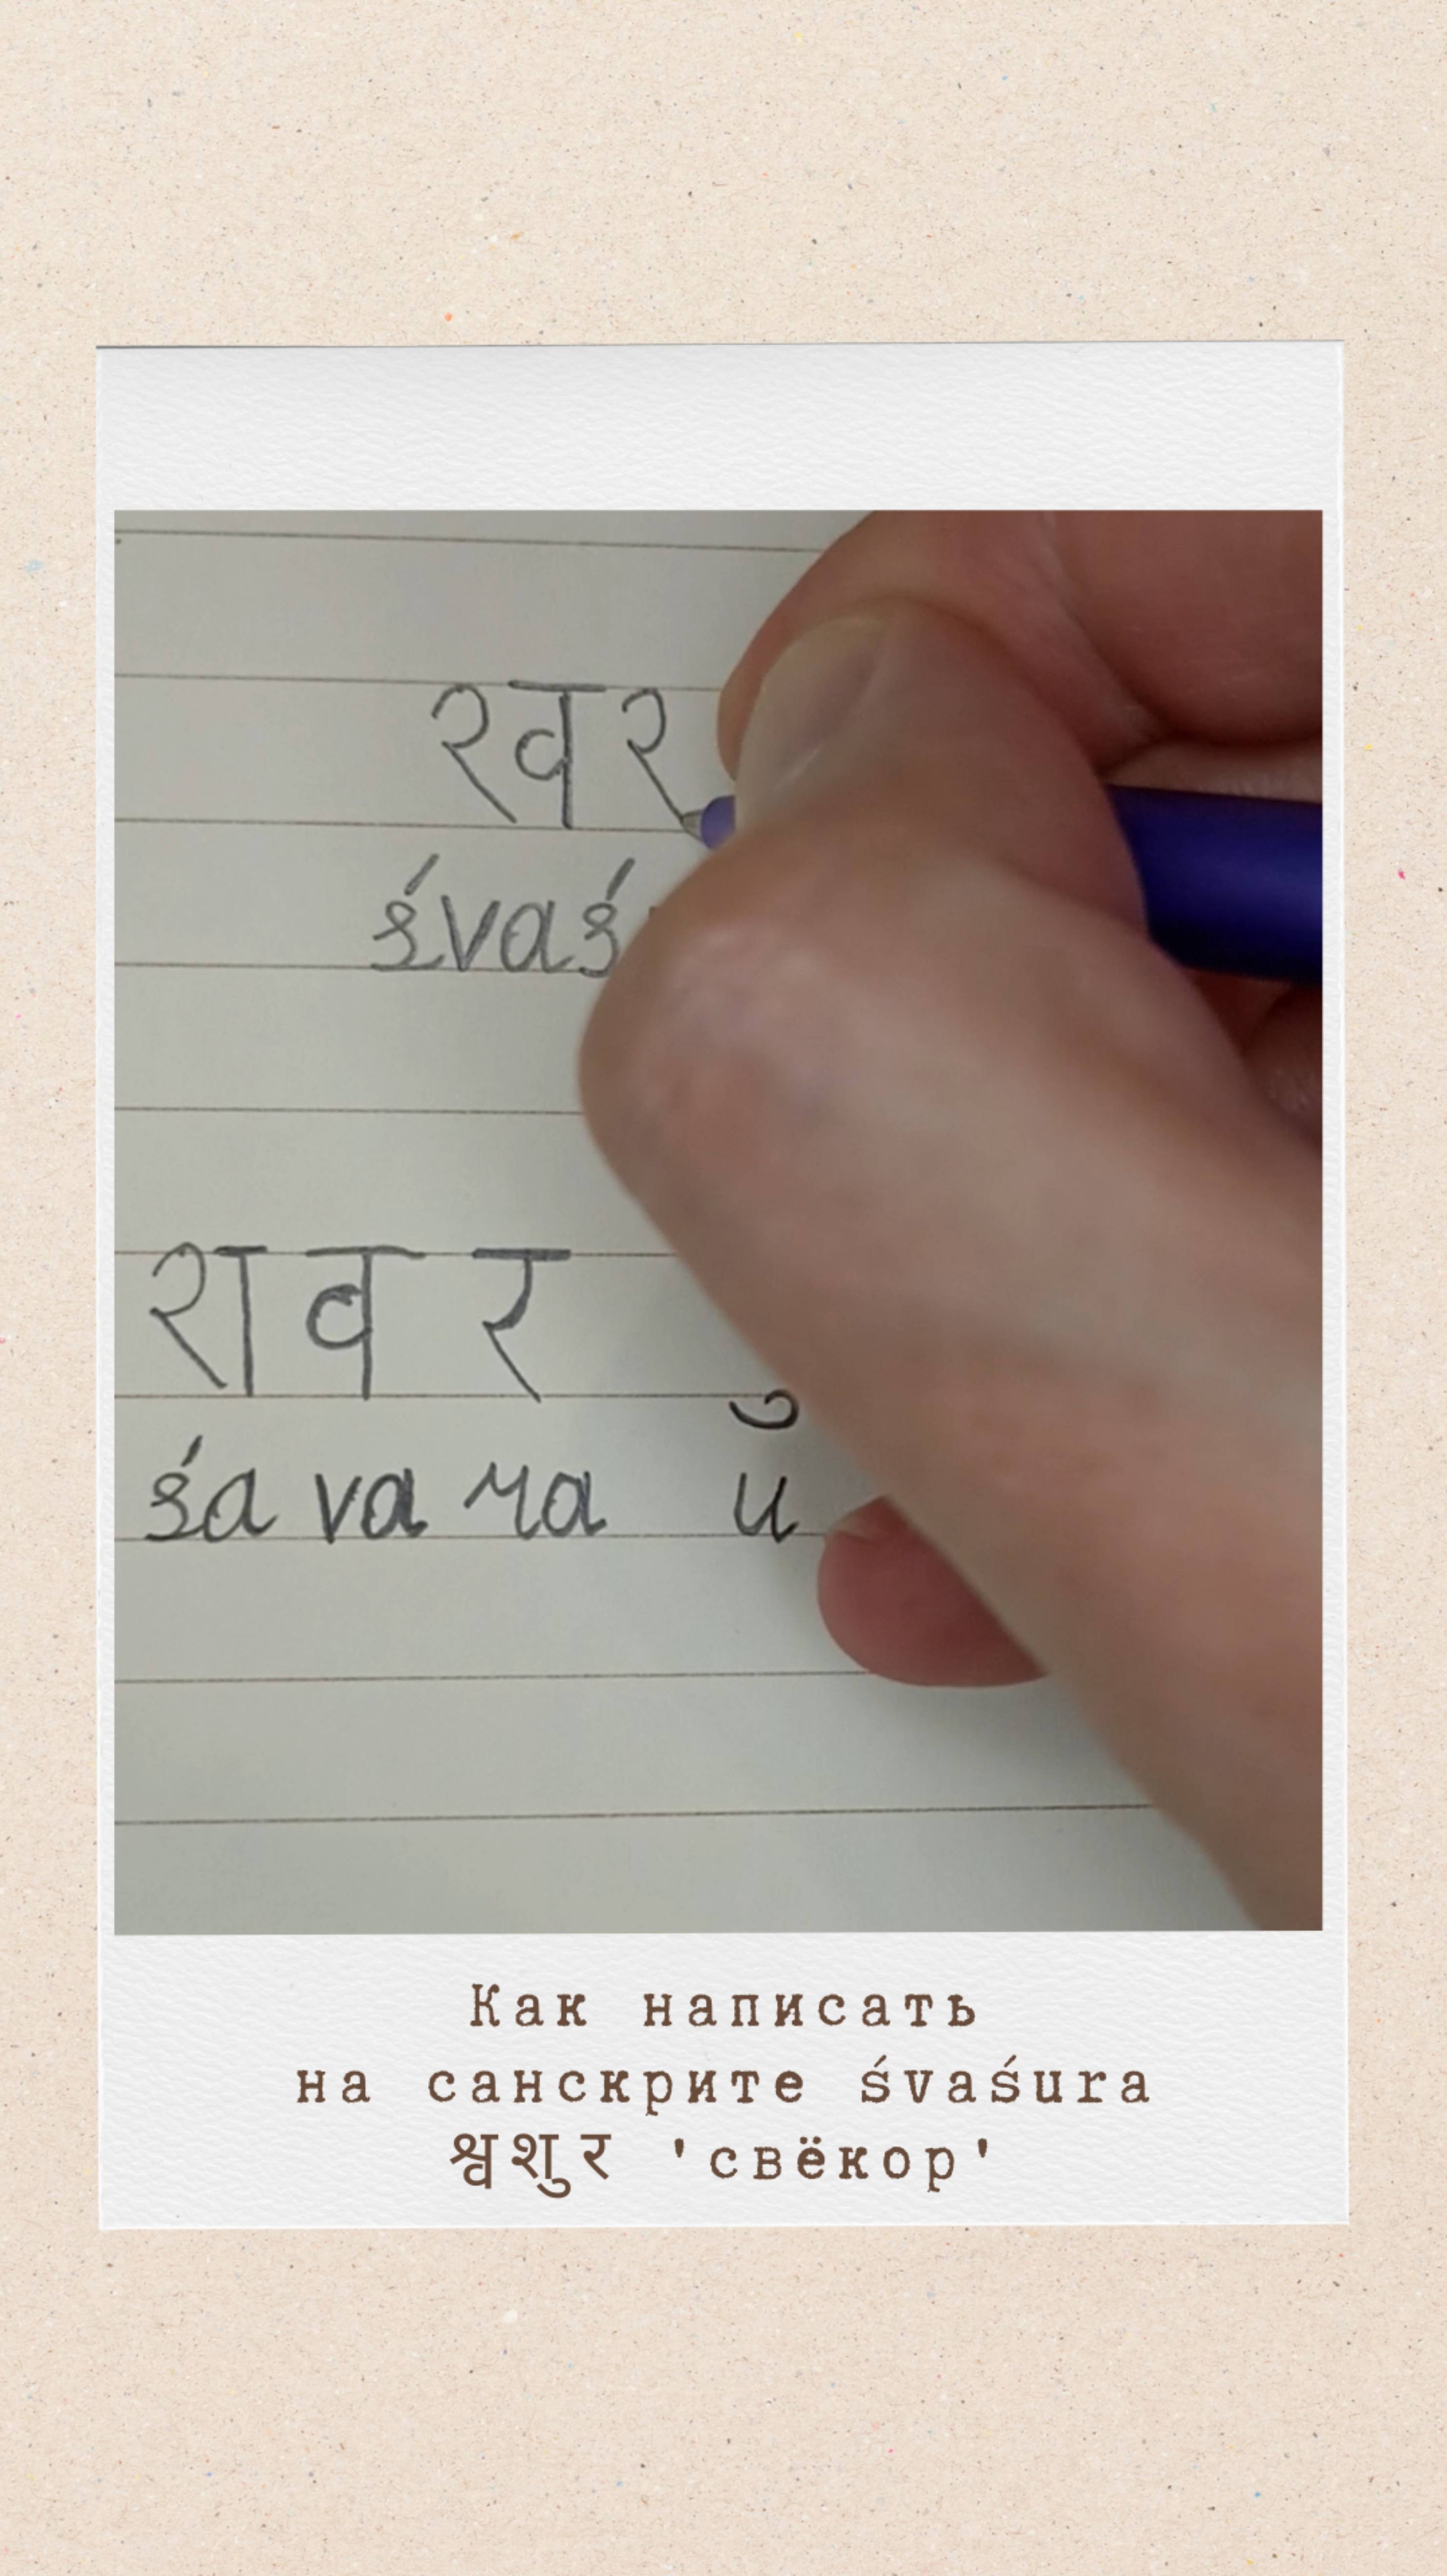 श्व२
śvaś
श व र ु
śa va ra u
Как написать
на санскрите śvaśura
श्वशुर 'свёкор'